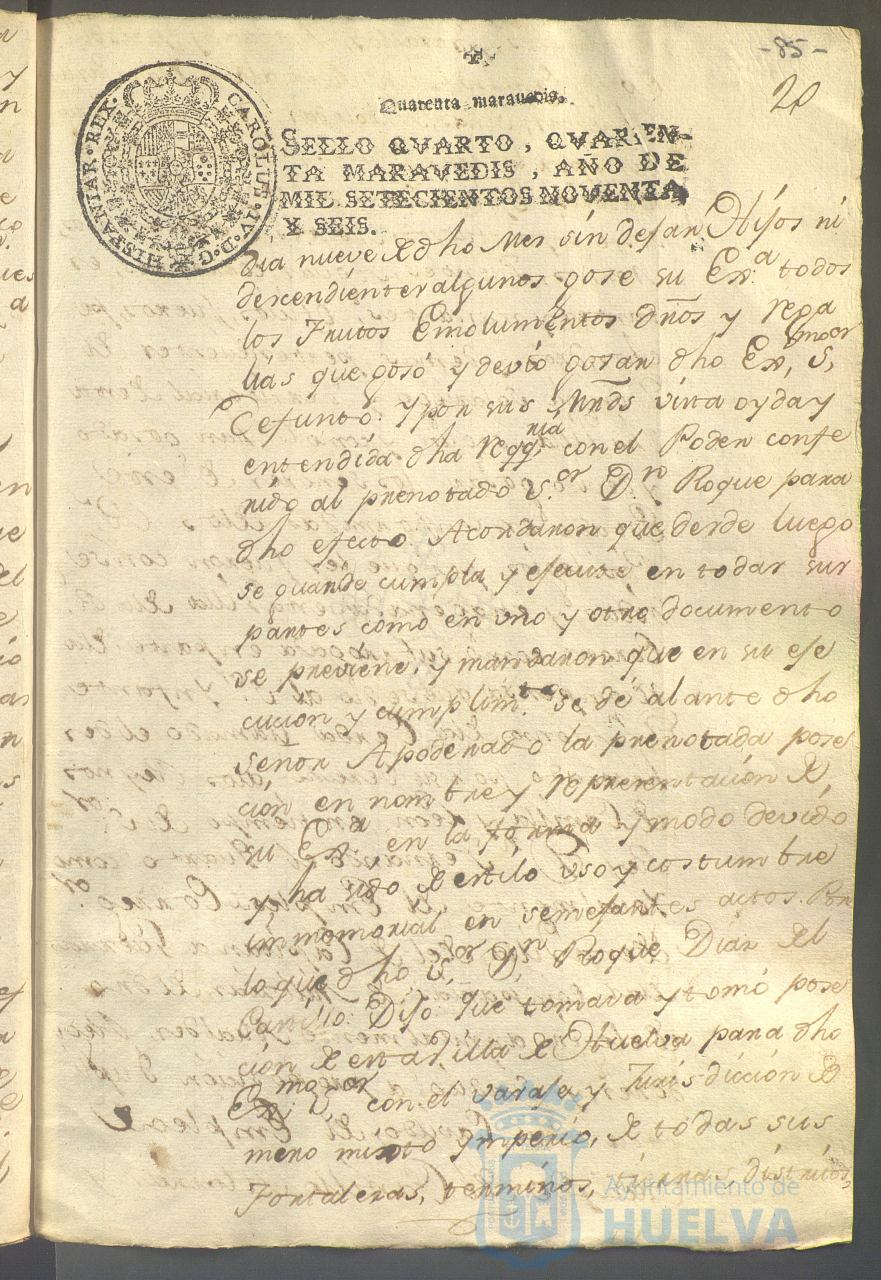 -85-
20
Quarenta maravedis.
SELLO QVARTO, QVAREN-
TA MARAVEDIS, AÑO DE
MIL SETECIENTOS NOVENTA
Y SEIS.
CAROLUS·IV·D·G·HISPANIAR·REX·
dia nueve de dho Mes sin dejar Hijos ni
descendientes algunos gose su Exª. todos
los Frutos Emolumentos dños y rega
lias que gosó y devió gosar dho Exmo, Sor,
Defunto. Y por sus Mrds vista oyda y
entendida dha reqqnia con el Poder confe
rido al prenotado Sor. Dn Roque para
dho efecto. Acordaron que desde luego
se guarde cumpla y ejecute en todas sus
partes como en uno y otro documento
se previene, y mandaron que en su eje
cucion y cumplimto. se dé al ante dho
señor Apoderado la prenotada pose
cion en nombre y representacion de,
su Exa. en la forma y modo devido
y ha sido de estilo uso y costumbre
immemorial en semejantes actos. Por
lo que dho Sor, Dn, Roque Diaz del
Carrillo Dijo, que tomava y tomó pose
ción de esta Villa de Huelva para dho
Exmo, Sor, con el vasaje y Jurisdicción de
mero misto Ymperio, de todas sus
Fortalezas, terminos, tierras, distritos,
Ayuntamiento de
HUELVA